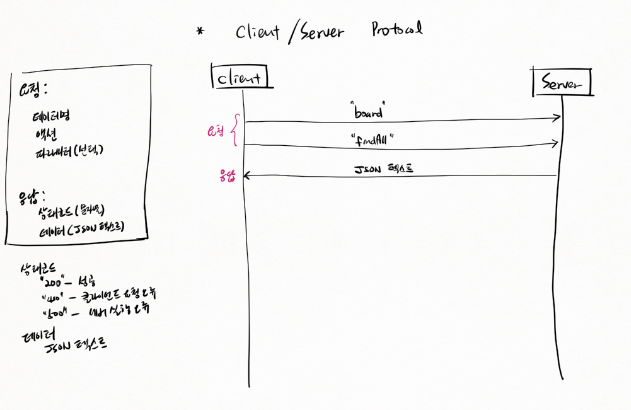 * Client/Server Protocol
요청:
데이터명
액션
파라미터(선택)
응답:
상태코드(문자열)
데이터(JSON 텍스트)
상태코드
"200" - 성공
"400" - 클라이언트 요청 오류
"500" - 서버 실행 오류
데이터
JSON 텍스트
client
Server
요청
"board"
"findAll"
응답
JSON 텍스트